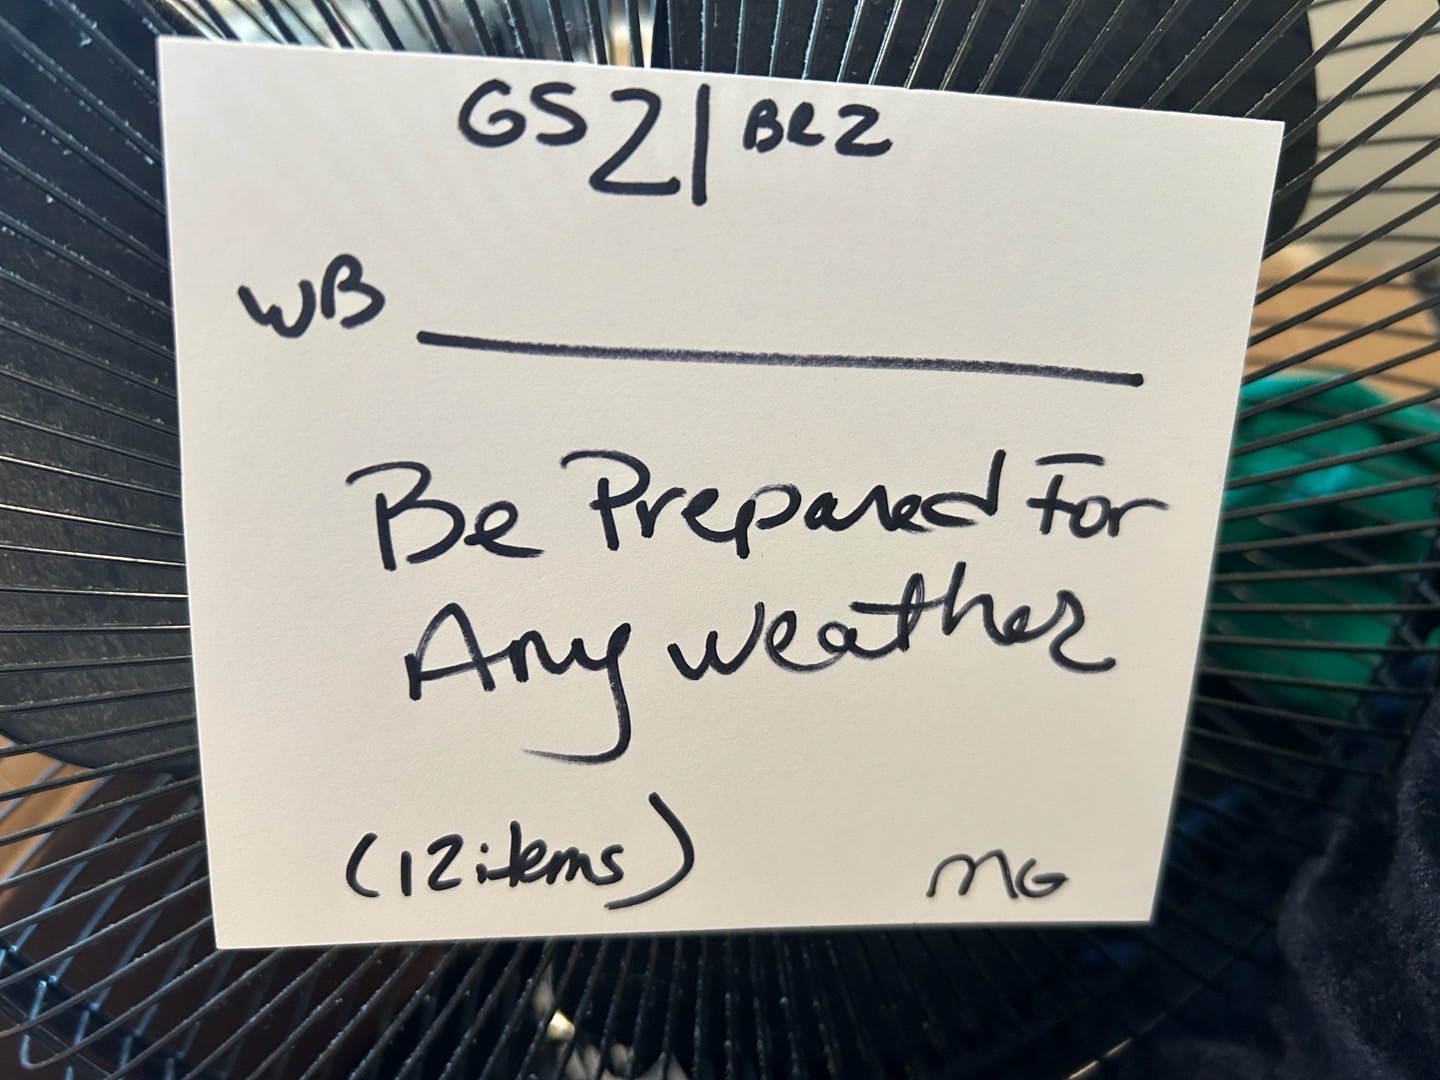 GS2|BR2
WB
Be Prepared For
Any weather
(12 items)
MG